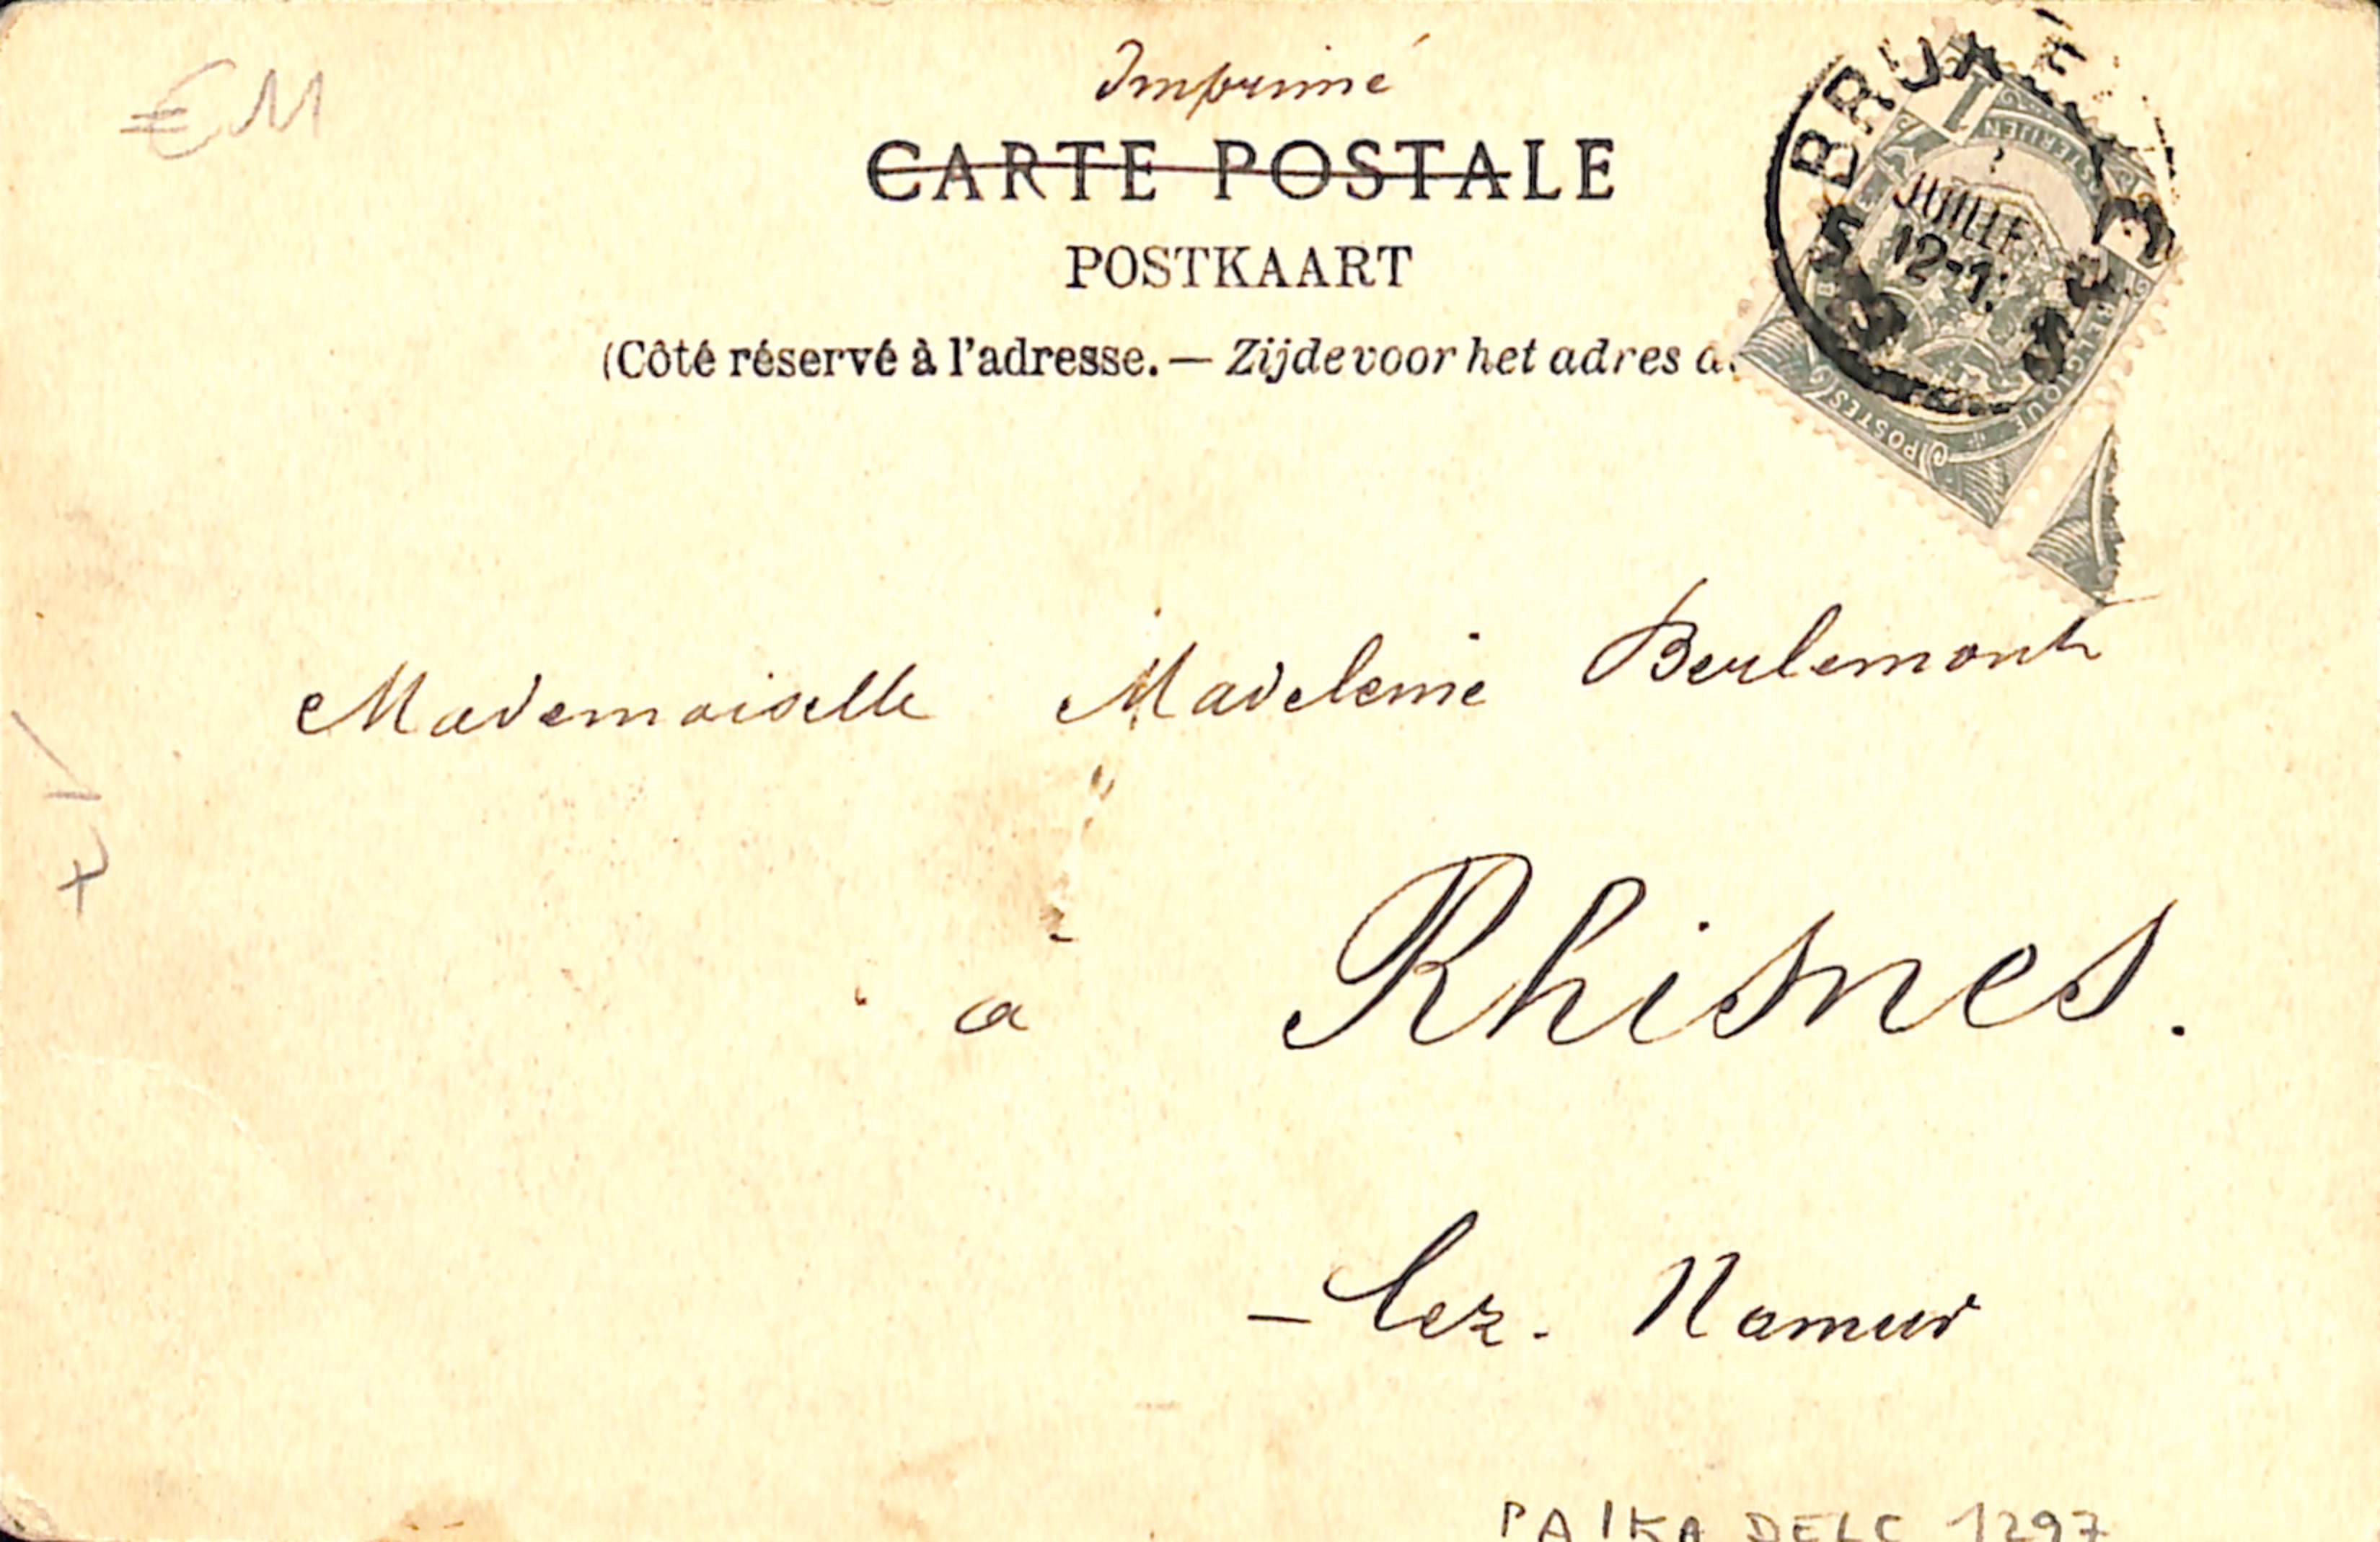 € 11
Imprimé
CARTE POSTALE
POSTKAART
(Côté réservé à l'adresse. — Zijde voor het adres
1
POSTERIJEN
BELGIQUE
POSTES
JUILLE
12-1
Mademoiselle Madeleine Berlemont
à Rhisnes.
– lez. Namur
DELC 1297